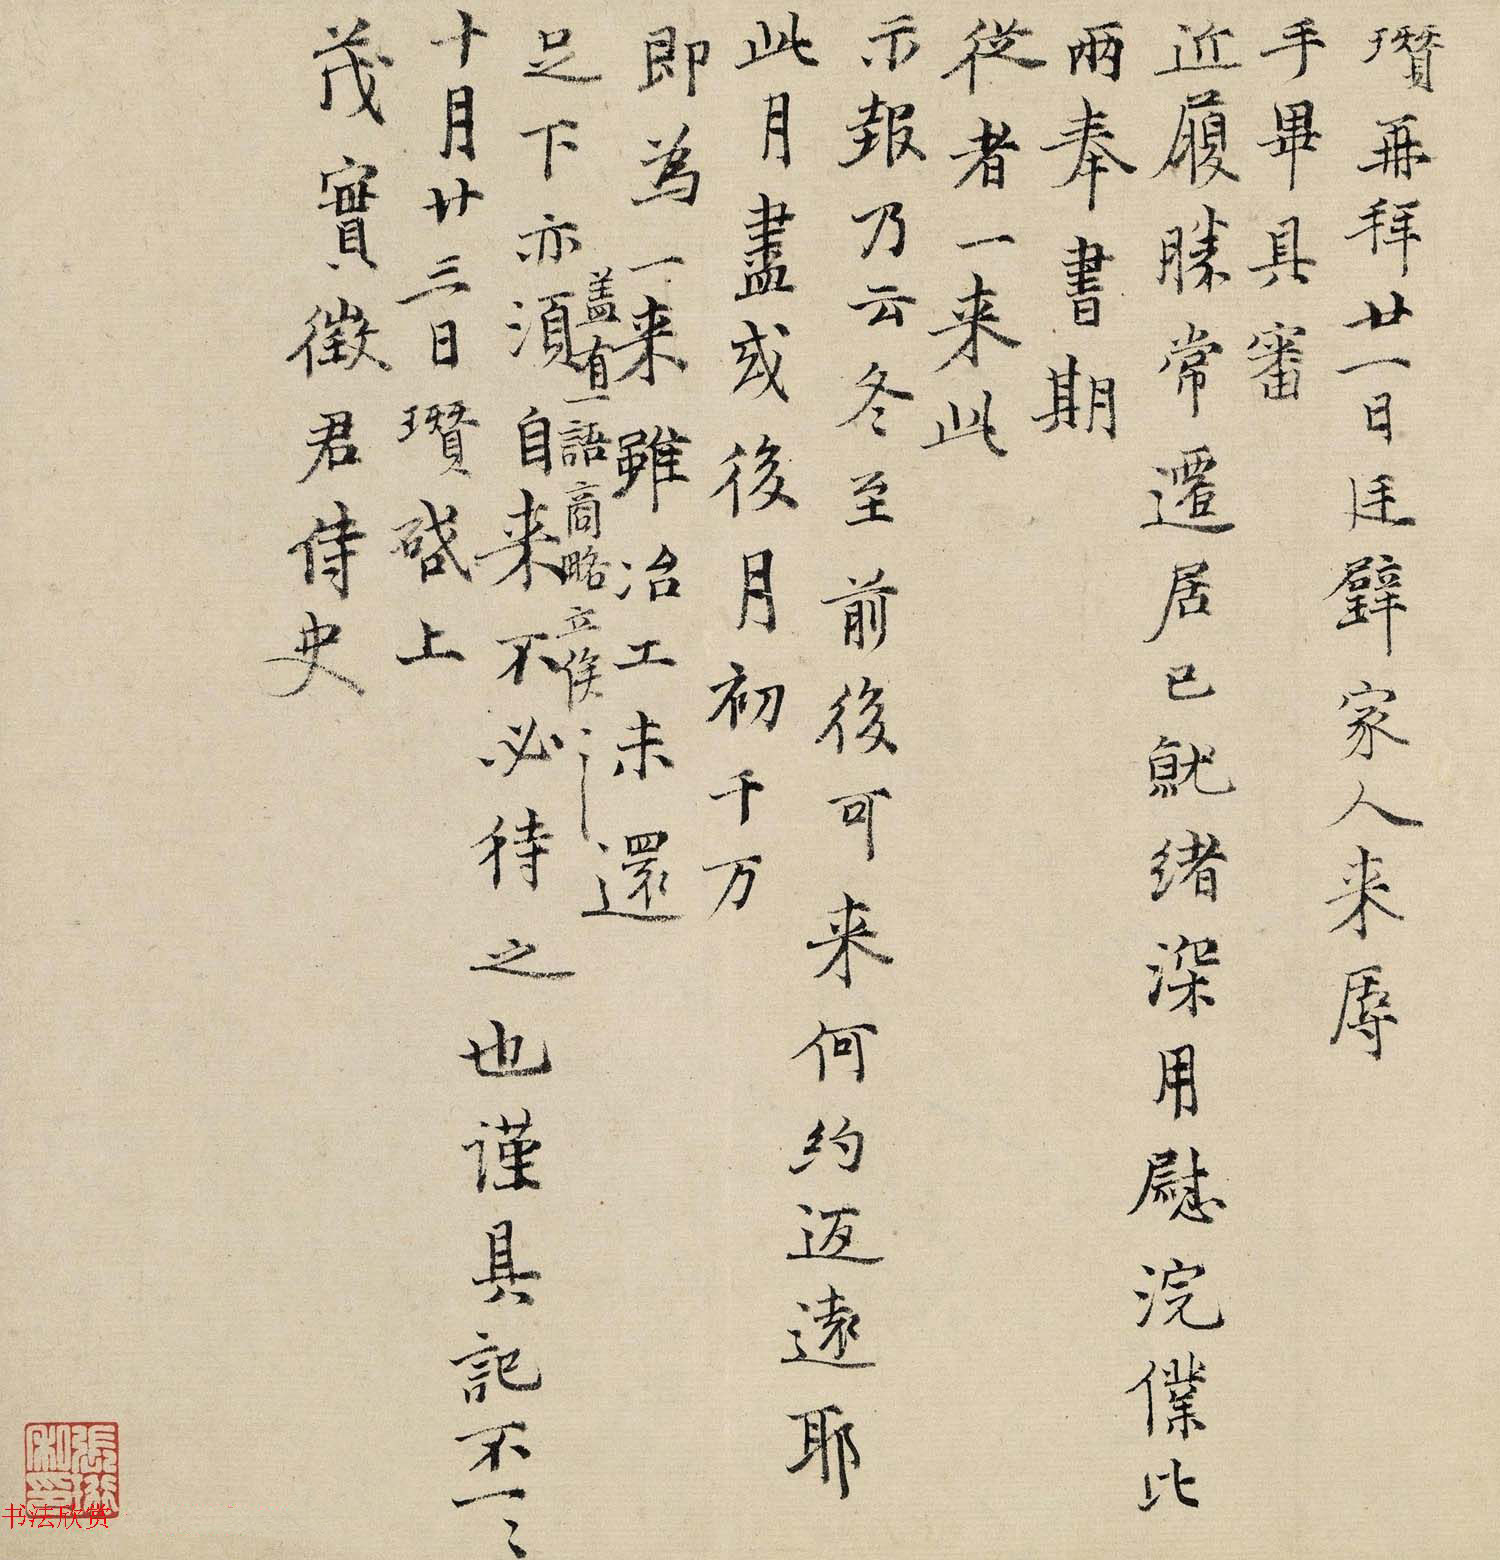 瓚再拜廿一日廷璧家人来辱
手畢具審
近履勝常遷居已就緒深用慰浣僕比
兩奉書期
從者一来此
示報乃云冬至前後可来何約迈遠耶
此月盡或後月初千万
即為一来雖冶工未還
盖有一語商略立俟〻
足下亦須自来不必待之也謹具記不一〻
十月廿三日瓚啓上
茂實徵君侍史
书法欣赏